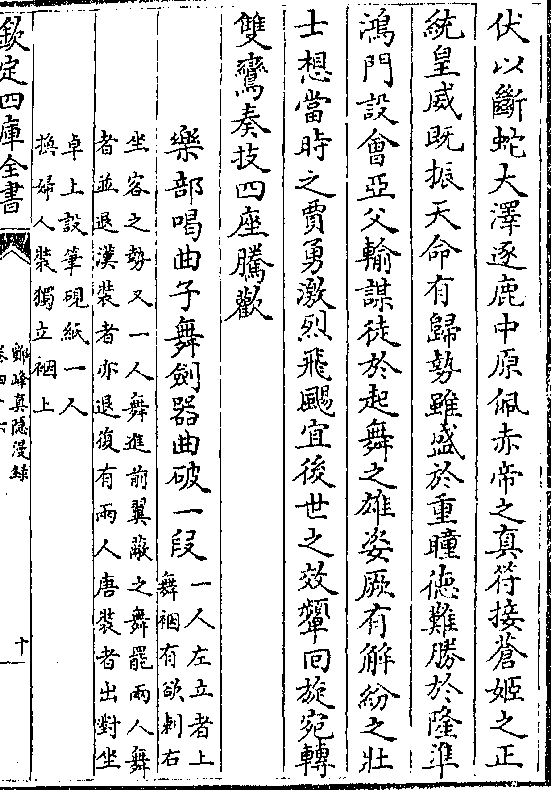 伏以斷蛇大澤逐鹿中原佩赤帝之真符接蒼姬之正
統皇威既振天命有歸勢雖盛於重瞳德難勝於隆準
鴻門設會亞父輸謀徒於起舞之雄姿厥有解紛之壯
士想當時之賈勇激烈飛颺宜後世之效顰回旋宛轉
雙鸞奏技四座騰歡
樂部唱曲子舞劍器曲破一段
一人左立者上
舞裀有欲刺右
坐客之勢又一人舞進前翼蔽之舞罷兩人舞
者並退漢裝者亦退復有兩人唐裝者出對坐
卓上設筆硯紙一人
換婦人裝獨立裀上
欽定四庫全書
鄮峰真隱漫錄
卷四十六
十